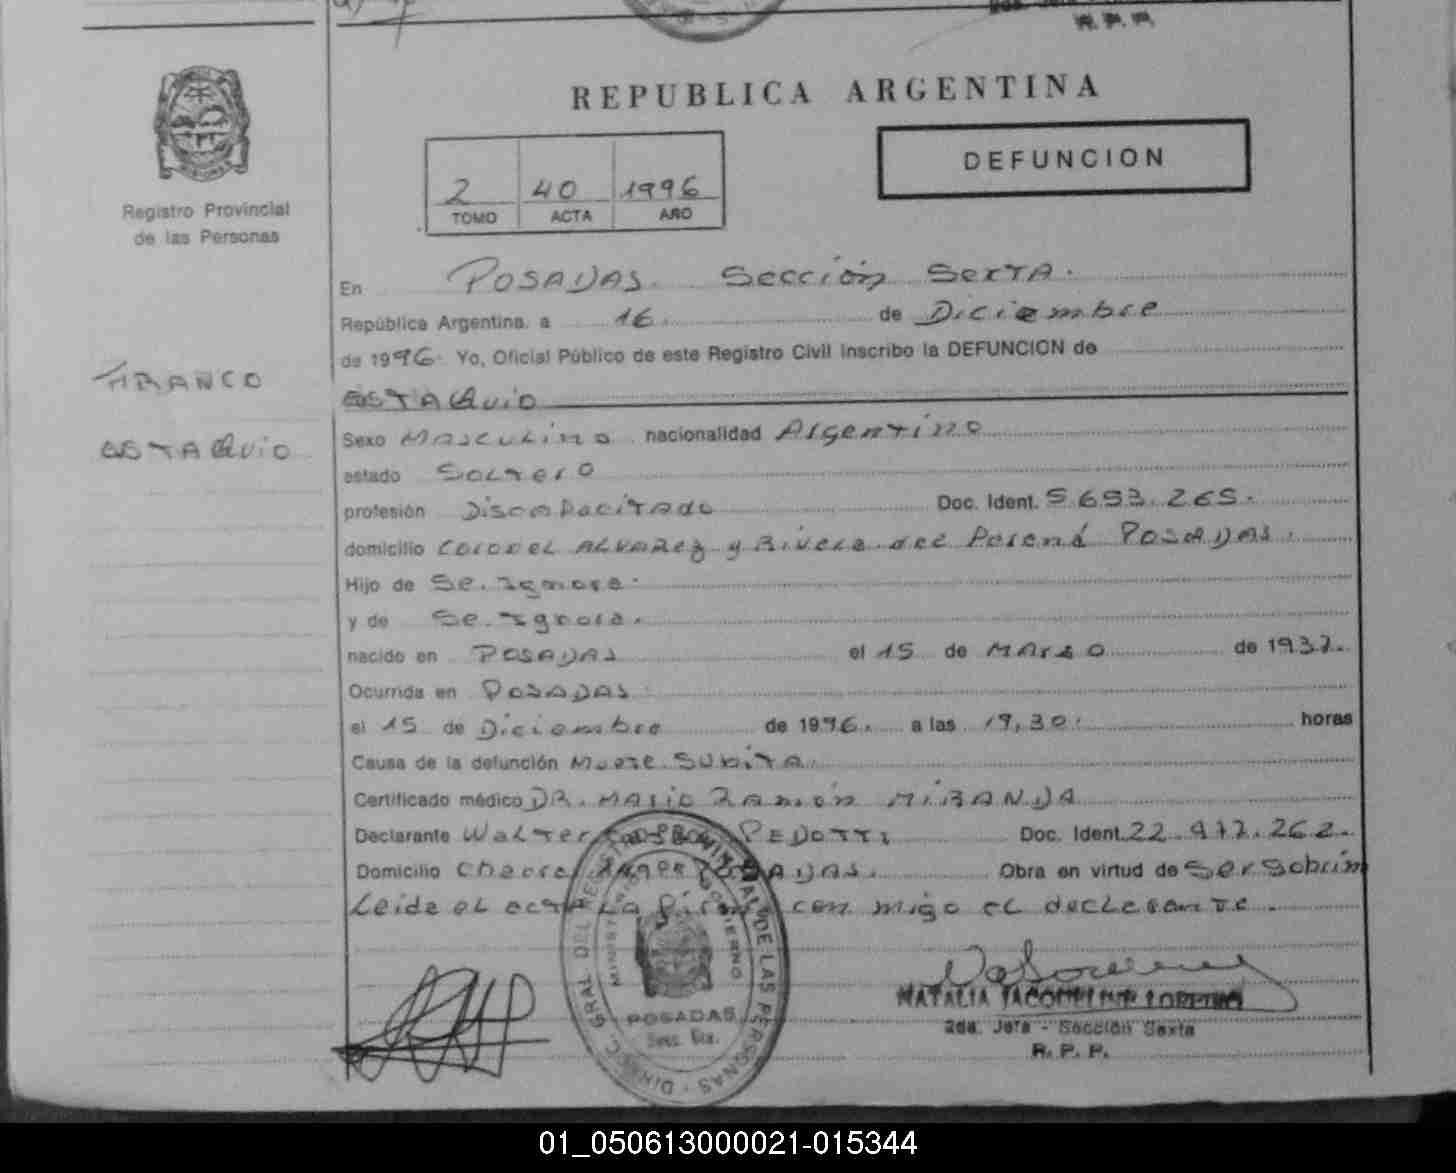 R. P. P.
REPUBLICA ARGENTINA
DEFUNCION
2 40 1996
TOMO ACTA AÑO
Registro Provincial
de las Personas
En POSADAS. Sección SexTA.
República Argentina, a 16. de Diciembre
de 1996. Yo, Oficial Público de este Registro Civil inscribo la DEFUNCION de
FRANCO
ESTAQuio
ESTAQuio
Sexo Masculino nacionalidad Argentino
estado Soltero
profesión Discapacitado Doc. Ident. 5.653.265.
domicilio Coronel ALVAREZ y Rivera del Paraná POSADAS.
Hijo de Se Ignora.
y de Se Ignora.
nacido en POSADAS el 15 de MArzo de 1937.
Ocurrida en POSADAS.
el 15 de Diciembre de 1996. a las 19,30. horas
Causa de la defunción Muerte SUbiTA.
Certificado médico DR. MArio Ramón MiRANDA
Declarante WaLTer PEDOTTI Doc. Ident. 22.972.262.
Domicilio Chacra POSADAS. Obra en virtud de Ser Sobrin
Leida el acta La firma con migo el declarante.
DIREC. GRAL DEL REGISTRO PROVINCIAL DE LAS PERSONAS
MINISTERIO GOBIERNO
POSADAS
Secc. 6ta.
NATALIA JACQUELINE
2da. Jefa - Sección Sexta
R. P. P.
01_050613000021-015344